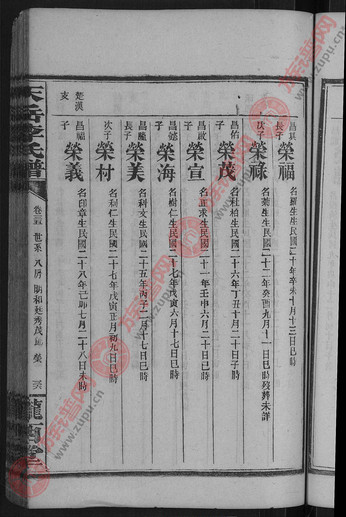 昌其長子 榮福 名 生生民國二十年辛未十月十三日巳時
次子 榮祿 名菊生生民國二十二年癸酉九月十一日巳時歿葬未詳
昌佑子 榮茂 名桂柏生民國二十六年丁丑十月二日子時
昌政子 榮宣 名正求生民國二十一年壬申六月二日戌時
昌 子 榮海 名樹仁生民國二十七年戊寅六月十七日子時
昌 長子 榮美 名利文生民國二十五年丙子二月十七日巳時
次子 榮材 名利仁生民國二十七年戊寅正月初九日巳時
昌福子 榮義 名印章生民國二十八年己卯七月二十八日未時
楚漢支
天岳李氏譜
卷 世系 八房
榮
隴西堂
族譜网
www.zupu.cn